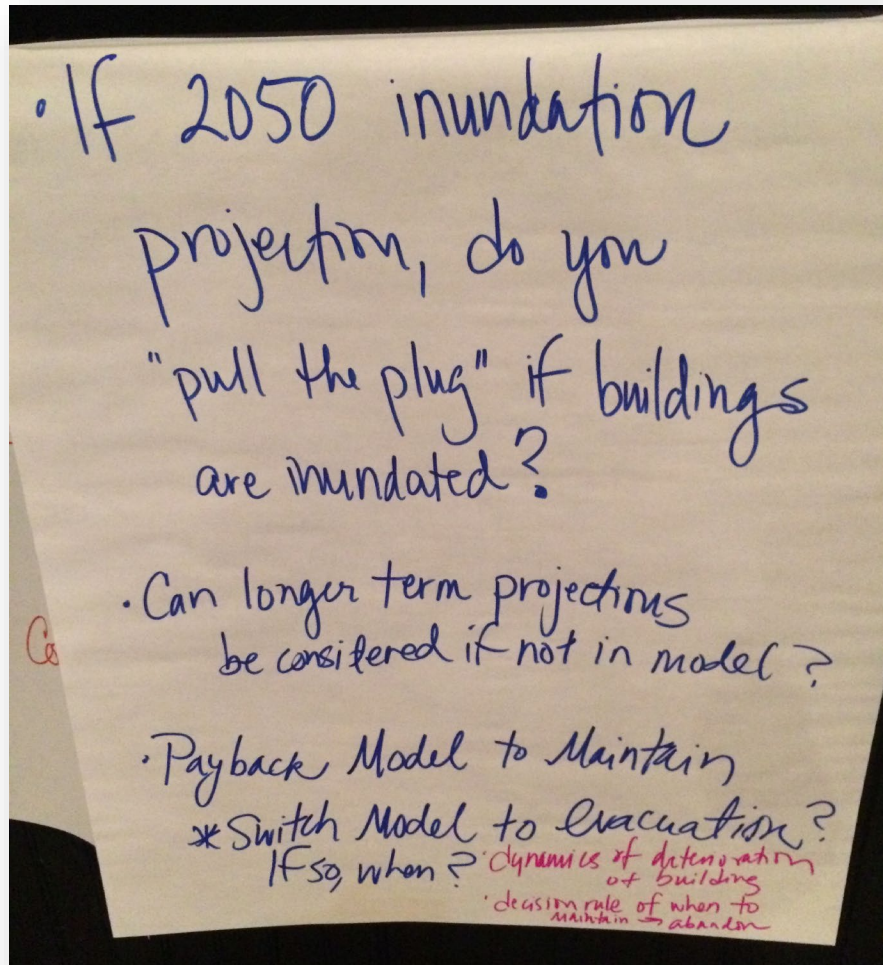 • If 2050 inundation
projection, do you
"pull the plug" if buildings
are inundated?
• Can longer term projections
be considered if not in model?
Co
• Payback Model to Maintain
* Switch Model to evacuation?
If so, when?
• dynamics of deterioration
of building
• decision rule of when to
maintain → abandon